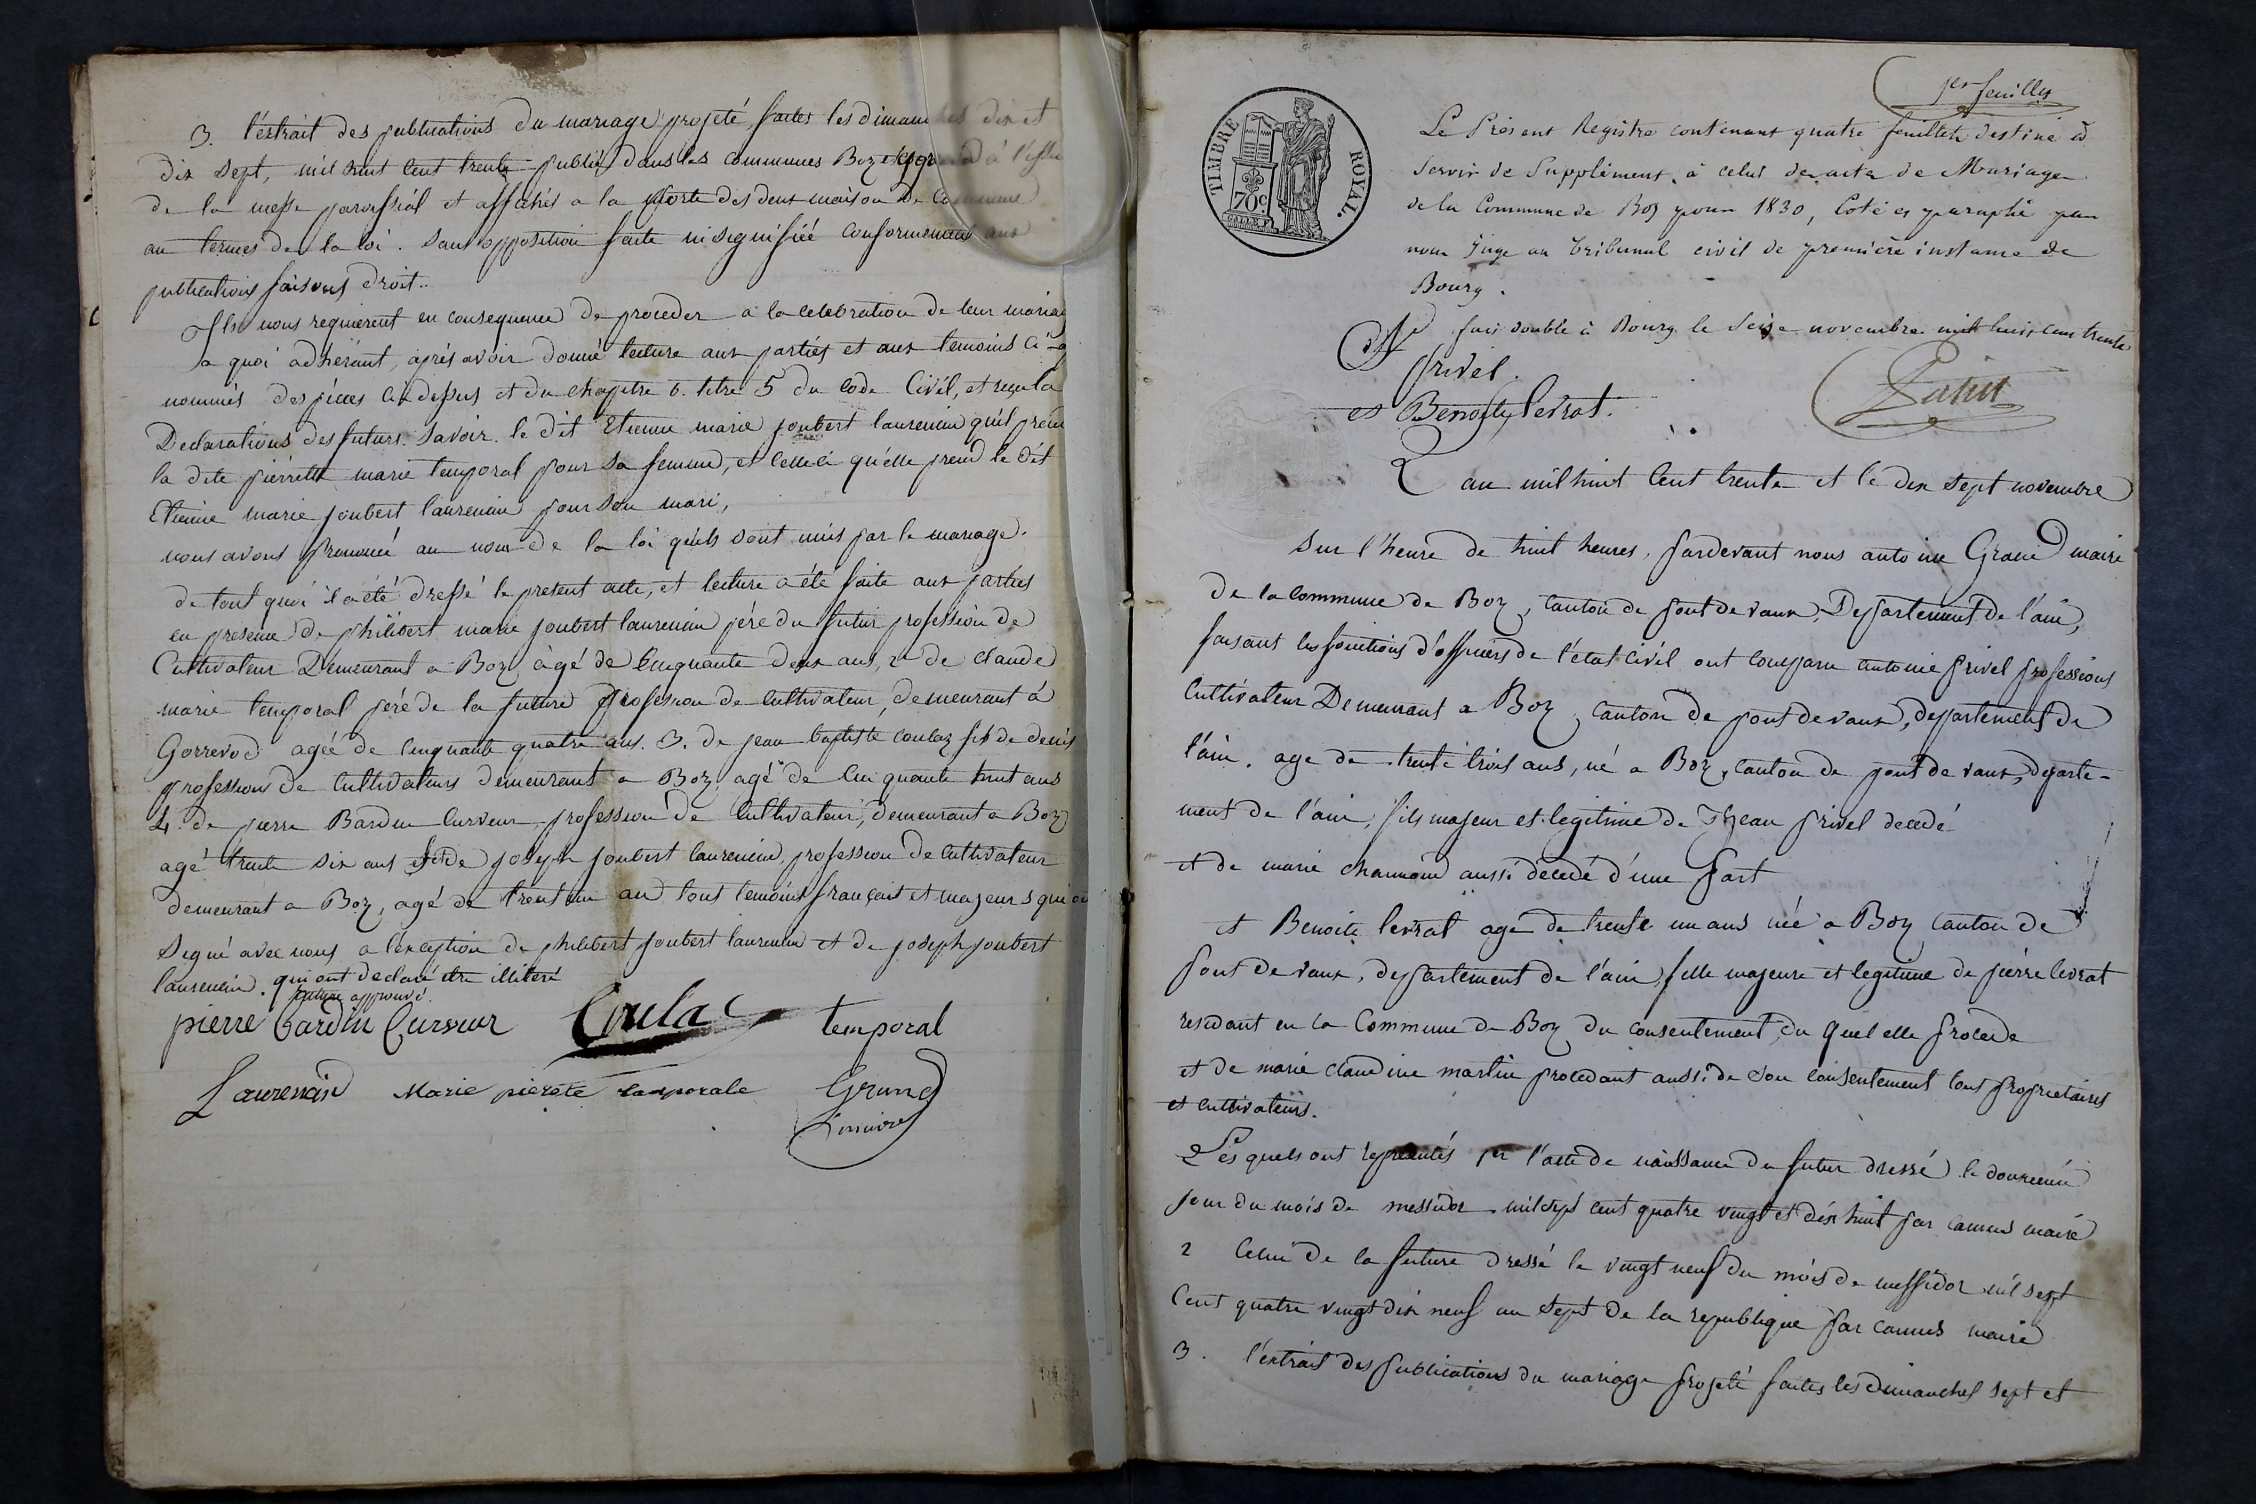 3. l'extrait des publications du mariage projeté, faites les dimanches dix et
dix sept, mil huit cent trente publié dans les communes Boz et
de la messe paroissial et affichés a la porte des deux maison de Commune
au termes de la loi. sans opposition faite ni signifiée conformement aux
publications faisons droit..
Ils nous requierent en consequence de proceder a la celebration de leur mariage
a quoi adhérant, après avoir donné lecture aux parties et aux temoins ci-
nommés des pièces ci dessus et du chapitre 6. titre 5 du code Civil, et reçu la
Declarations des futurs. Savoir. le dit Etienne marie joubert laurencin qu'il prend
la dite pierrette marie temporal pour sa femme, et celle ci qu'elle prend le dit
Etienne marie joubert laurencin pour son mari,
nous avons prononcé au nom de la loi qu'ils sont unis par le mariage.
de tout quoi il a été dressé le present acte, et lecture a été faite aux parties
en presence de philibert marie joubert laurencin père du futur profession de
Cultivateur Demeurant a Boz, agé de Cinquante deux ans, 2 de claude
marie temporal père de la future profession de cultivateur, demeurant á
Gorrevod agée de Cinquante quatre ans. 3. de jean baptiste coulaz fils de denis
profession de Cultivateurs demeurant a Boz, agé de Cinquante huit ans
4. de pierre Bardin Curveur profession de Cultivateur, demeurant a Boz
agé trente six ans et de joseph joubert laurencin, profession de cultivateur
demeurant a Boz, agé de trent un an tous temoins français et majeurs qui ont
signé avec nous a l'exception de philibert joubert laurencin et de joseph joubert
laurencin. qui ont declaré être illiteré
approuvé.
pierre Bardin Curveur Coulaz temporal
Laurencin Marie pierete temporale Grand
1er feuillet
Le Présent Registre contenant quatre feuillets destiné à
servir de Supplément, à celui des actes de Mariage
de la Commune de Boz pour 1830, Coté et paraphé par
nous Juge au Tribunal civil de première instance de
Bourg.
fait double à Bourg le Seize novembre mil huit cent trente
TIMBRE ROYAL.
70c.
privel.
et Benoite levrat.
L'an mil huit Cent trente et le dix sept novembre
sur l'heure de huit heures, pardevant nous antoine Grand maire
de la commune de Boz, canton de pont de vaux, Departement de l'ain,
faisant les fonctions d'officiers de l'état civil ont comparu antoine privel professions
Cultivateur Demeurant a Boz, canton de pont de vaux, departement de
l'ain. age de trente trois ans, né a Boz, canton de pont de vaux, departe-
ment de l'ain, fils majeur et legitime de Jean privel decedé
et de marie chamoin aussi décedé d'une part
et Benoite levrat agé de trente un ans née a Boz canton de
pont de vaux, departement de l'ain, fille majeure et legitime de pierre levrat
residant en la Commune de Boz du consentement du quel elle procede
et de marie claudine martin procedant aussi de son consentement tous proprietaires
et cultivateurs.
Les quels ont representés 1er l'acte de naissance du futur dressé le douzieme
jour du mois de messidor mil sept cent quatre vingt et dix huit par camus maire
2 Celui de la future dressé le vingt neuf du mois de messidor mil sept
Cent quatre vingt dix neuf an sept de la republique par camus maire
3. l'extrait des publications du mariage projeté faites les dimanches sept et